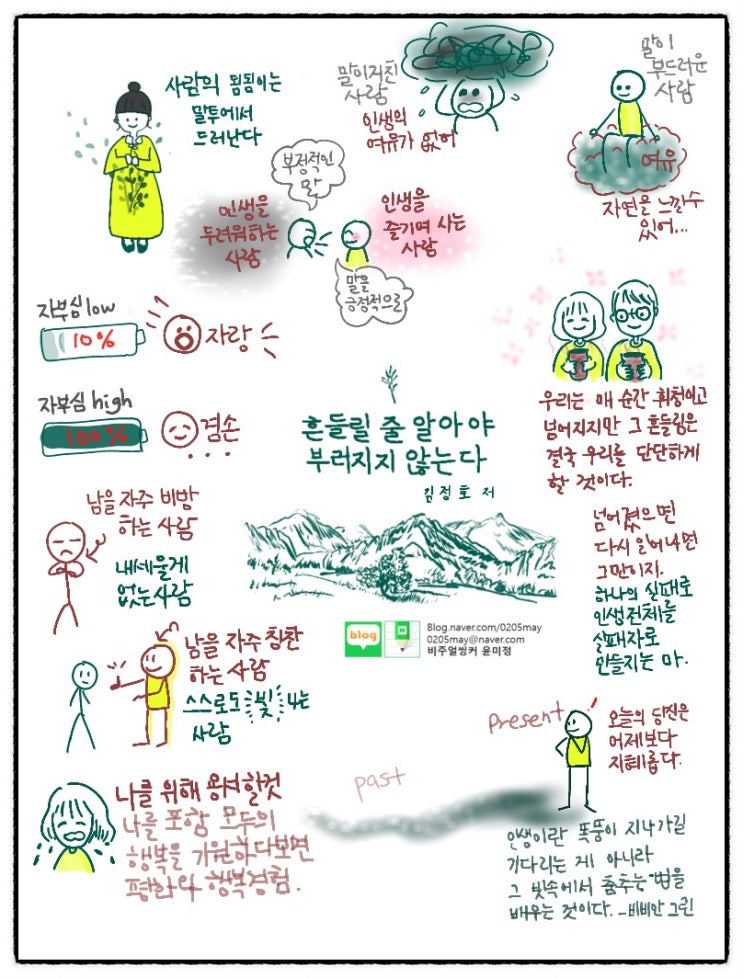 사람의 됨됨이는
말투에서
드러난다
말이 거친
사람
인생의
여유가 없어
말이
부드러운
사람
여유
자연을 느낄수
있어...
부정적인
말
인생을
두려워하는
사람
인생을
즐기며 사는
사람
말을
긍정적으로
자부심 low
10%
자랑
자부심 high
100%
겸손
흔들릴 줄 알아야
부러지지 않는다
김정호 저
우리는 매 순간 휘청이고
넘어지지만 그 흔들림은
결국 우리를 단단하게
할 것이다.
남을 자주 비방
하는 사람
내세울게
없는 사람
넘어졌으면
다시 일어나면
그만이지.
하나의 실패로
인생전체를
실패자로
만들지는 마.
blog
N
Blog.naver.com/0205may
0205may@naver.com
비주얼씽커 윤미정
남을 자주 칭찬
하는 사람
스스로도 빛나는
사람
Present
오늘의 당신은
어제보다
지혜롭다.
past
나를 위해 용서할것
나를 포함 모두의
행복을 기원하다보면
평화와 행복경험.
인생이란 폭풍이 지나가길
기다리는 게 아니라
그 빗속에서 춤추는 법을
배우는 것이다. -비비안 그린